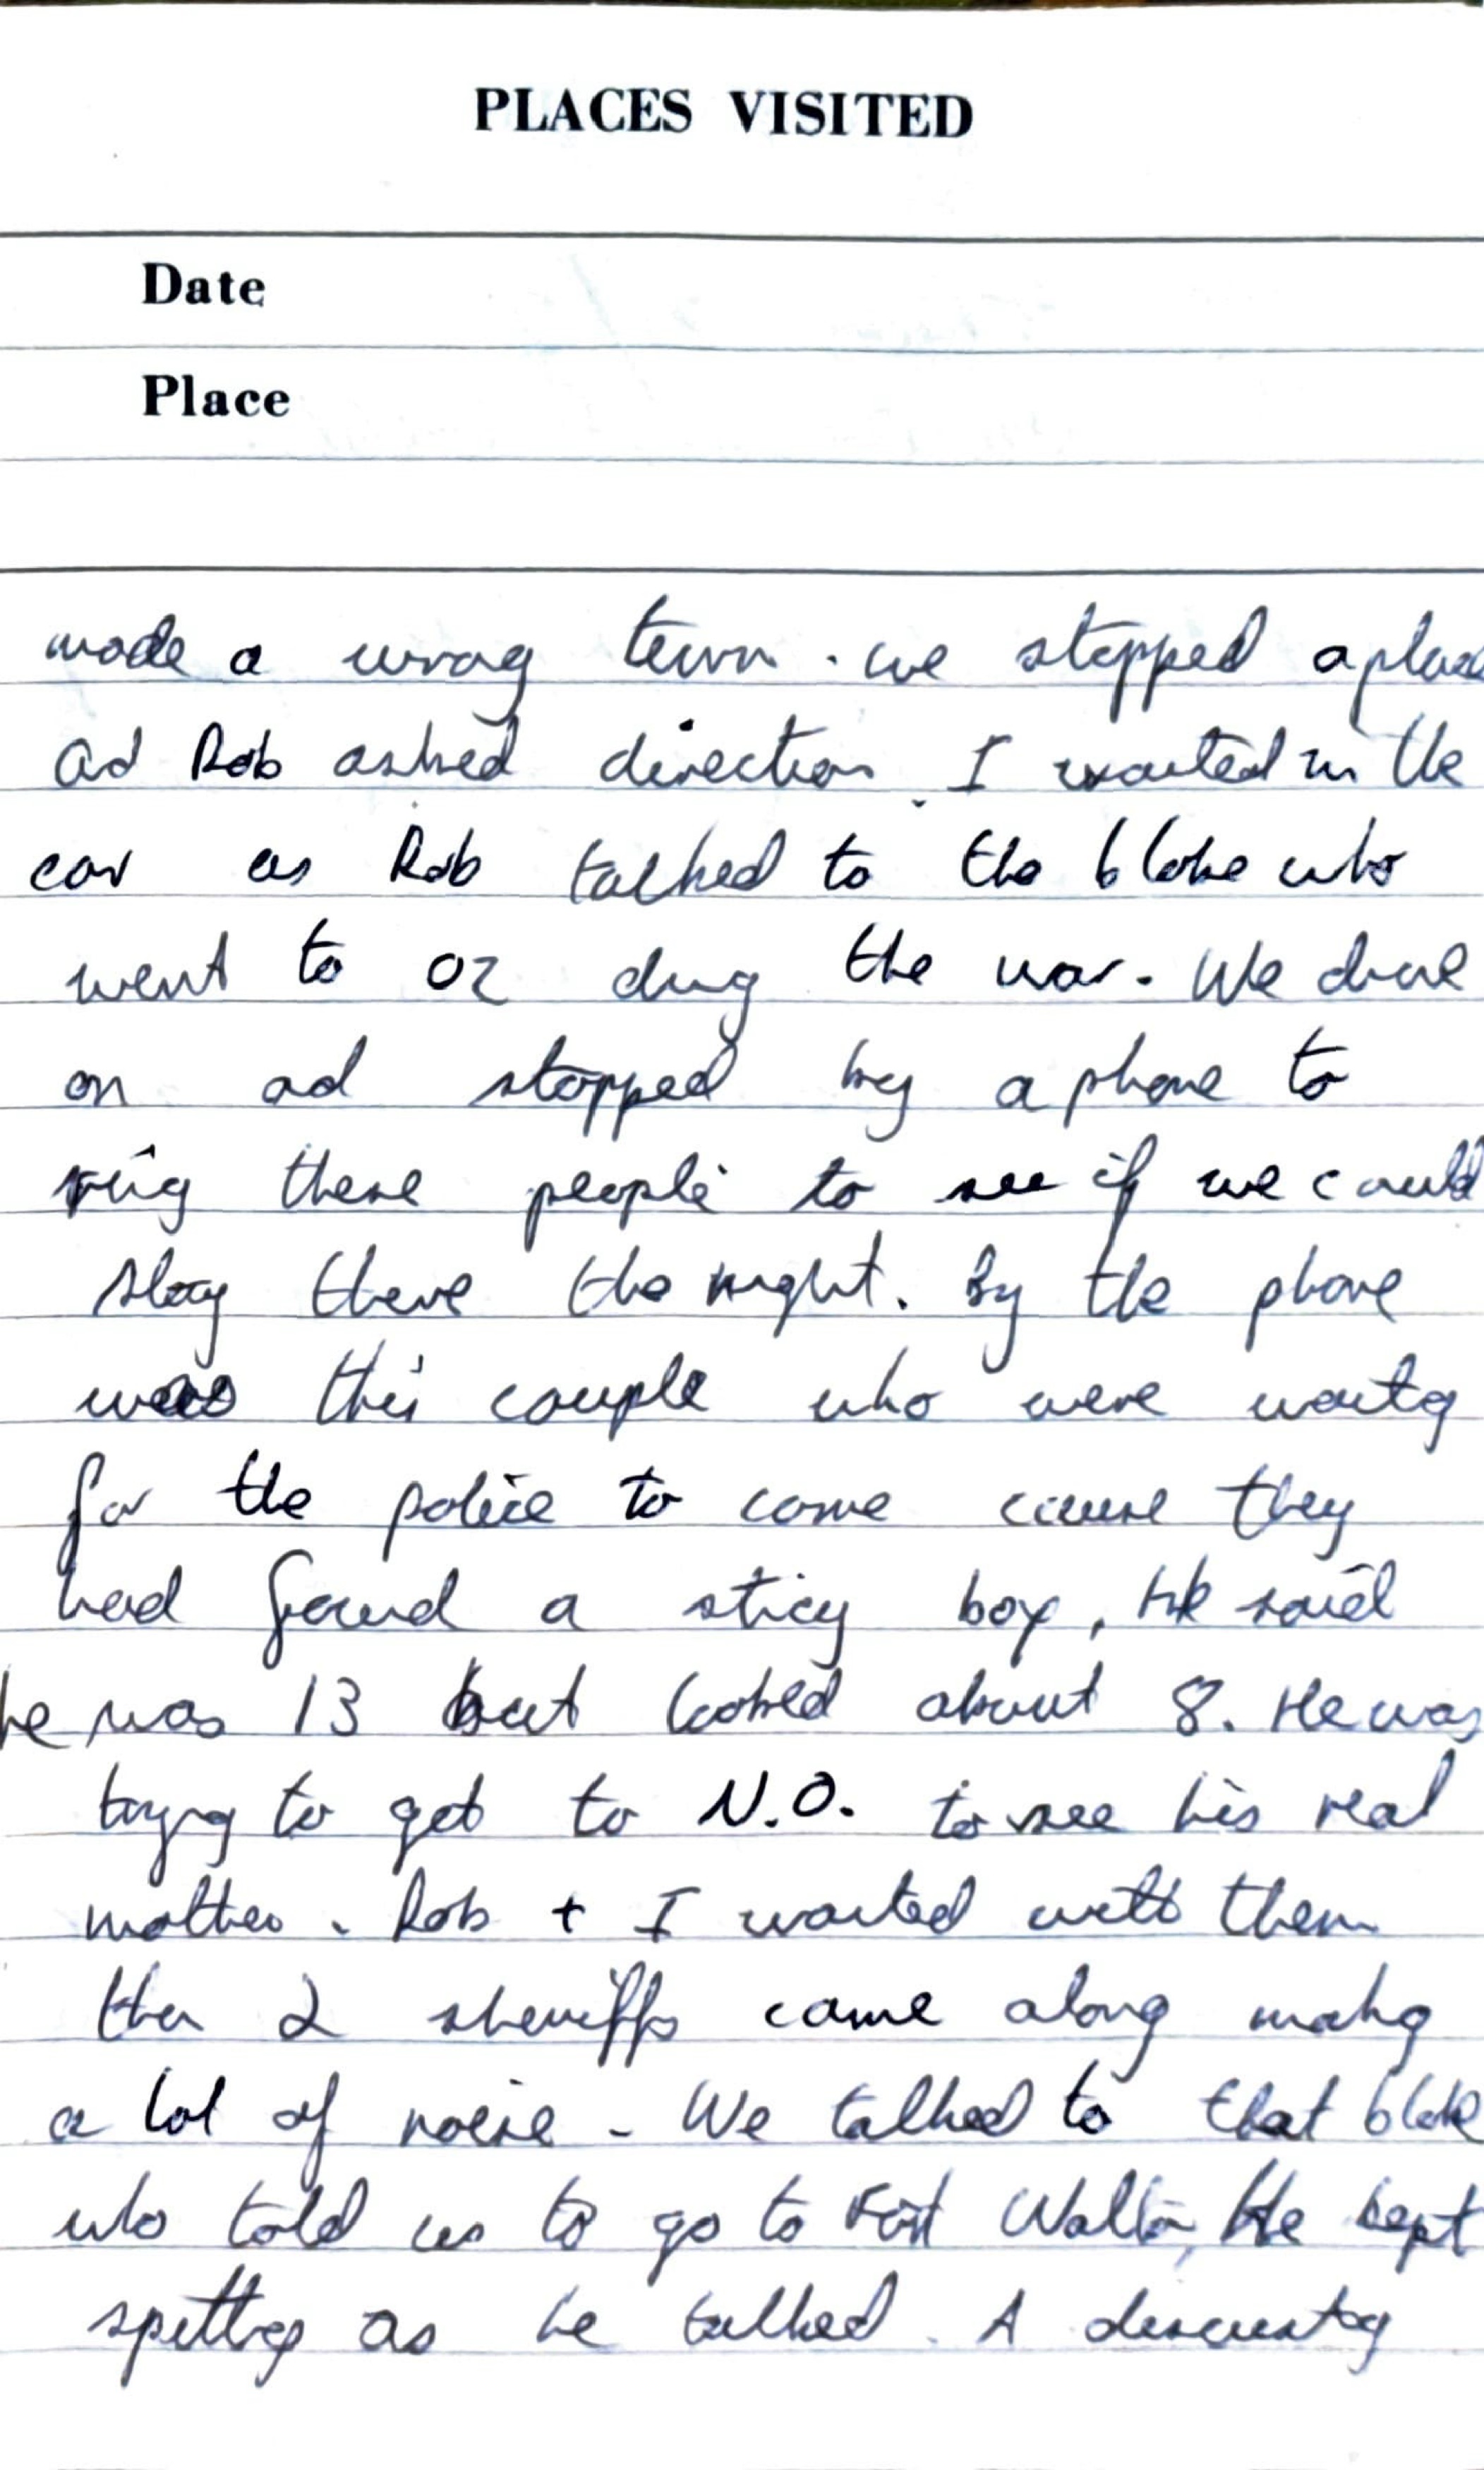 PLACES VISITED
Date
Place
made a wrog turn. we stopped a place
ad Rob asked direction. I waited in the
car as Rob talked to the bloke who
went to OZ durg the war. We drove
on ad stopped by a phone to
rig these people to see if we could
stay there the night. By the phone
was this couple who were waitg
for the police to come cause they
had found a
boy, He said
he was 13 but looked about 8. He was
tryg to get to N.O. to see his real
mother. Rob + I waited with them
then 2 sheriffs came along makg
a lot of noise - We talked to that bloke
who told us to go to Fort Walton, He kept
spittig as he talked. A discustg